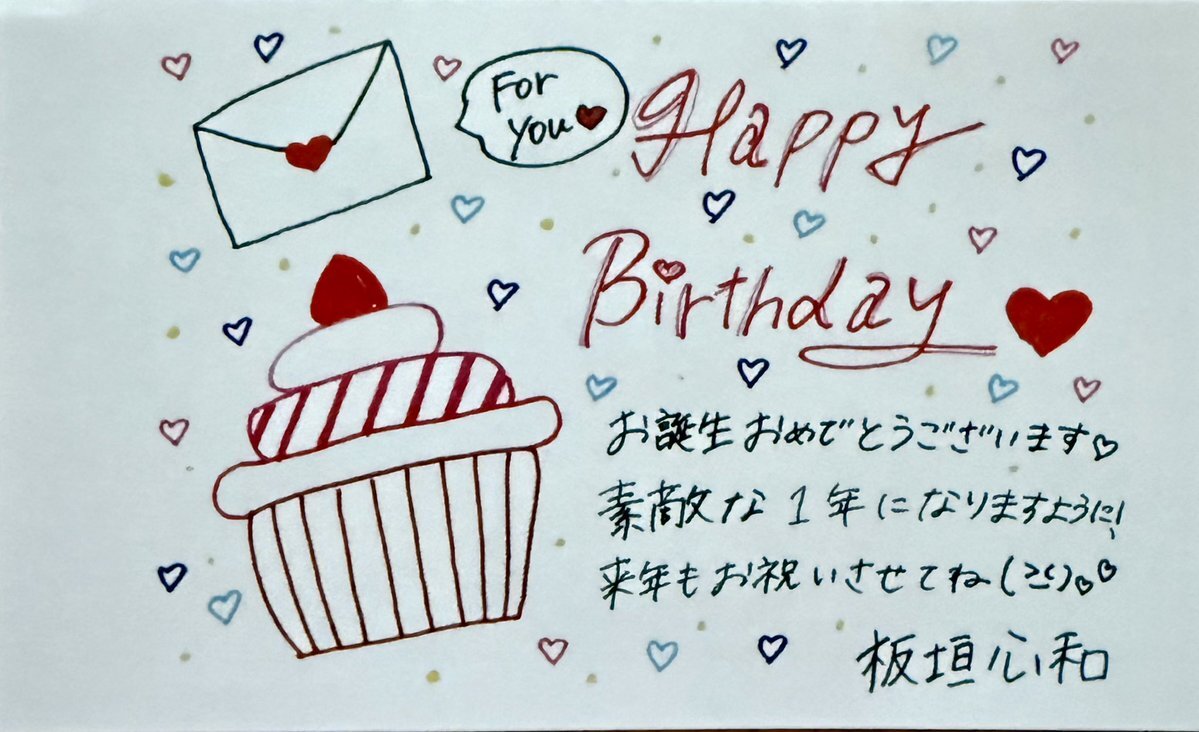 For
you♥
Happy
Birthday
お誕生おめでとうございます♡
素敵な1年になりますように!
来年もお祝いさせてね(≧≦)♡♡
板垣心和